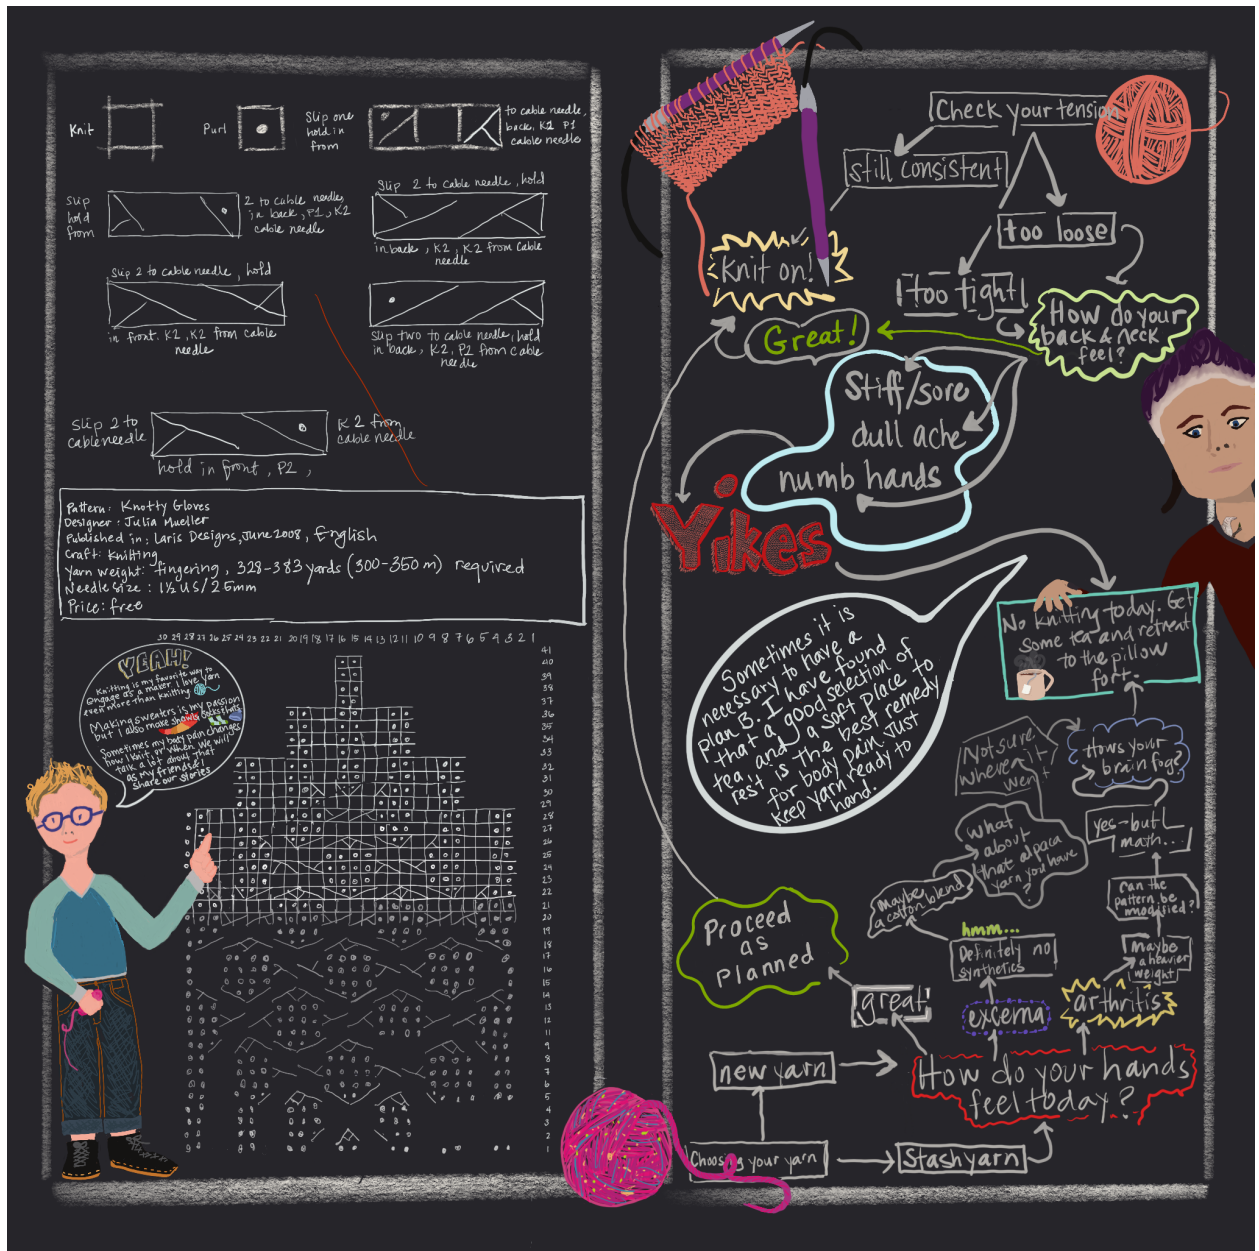 Knit
Purl
Slip one
hold in
from
to cable needle,
back, K2 P1
cable needle
Slip
hold
from
2 to cable needle,
in back, P1, K2
cable needle
Slip 2 to cable needle, hold
in back, K2, K2 from cable
needle
Slip 2 to cable needle, hold
in front. K2, K2 from cable
needle
Slip two to cable needle, hold
in back, K2, P2 from cable
needle
Slip 2 to
cable needle
K2 from
cable needle
hold in front, P2,
Pattern: Knotty Gloves
Designer: Julia Mueller
Published in: Laris Designs, June 2008, English
Craft: Knitting
Yarn weight: fingering, 328-383 yards (300-350 m) required
Needle size: 1½ US/2.5mm
Price: free
30 29 28 27 26 25 24 23 22 21 20 19 18 17 16 15 14 13 12 11 10 9 8 7 6 5 4 3 2 1
41
40
39
38
37
36
35
34
33
32
31
30
29
28
27
26
25
24
23
22
21
20
19
18
17
16
15
14
13
12
11
10
9
8
7
6
5
4
3
2
1
YEAH!
Knitting is my favorite way to
engage as a maker I love yarn
even more than knitting
Making sweaters is my passion
but I also make shawls socks hats
Sometimes my body pain changes
how I knit, or when. We will
talk a lot about that
as my friends &
share our stories
Check your tension
still consistent
too loose
Knit on!
too tight
How do your
back & neck
feel?
Great!
Stiff/sore
dull ache
numb hands
Yikes
No knitting today. Get
some tea and retreat
to the pillow
fort.
Sometimes it is
necessary to have a
plan B. I have found
that a good selection of
tea, and a soft place to
rest is the best remedy
for body pain Just
keep yarn ready to
hand.
Not sure
where it
went
Hows your
brain fog?
what
about
that alpaca
yarn you have
?
yes-but
math...
maybe
a cotton blend
can the
pattern be
modified?
Proceed
as
Planned
hmm...
Definitely no
synthetics
maybe
a heavier
weight
great
excema
arthritis
new yarn
How do your hands
feel today?
Choosing your yarn
Stash yarn